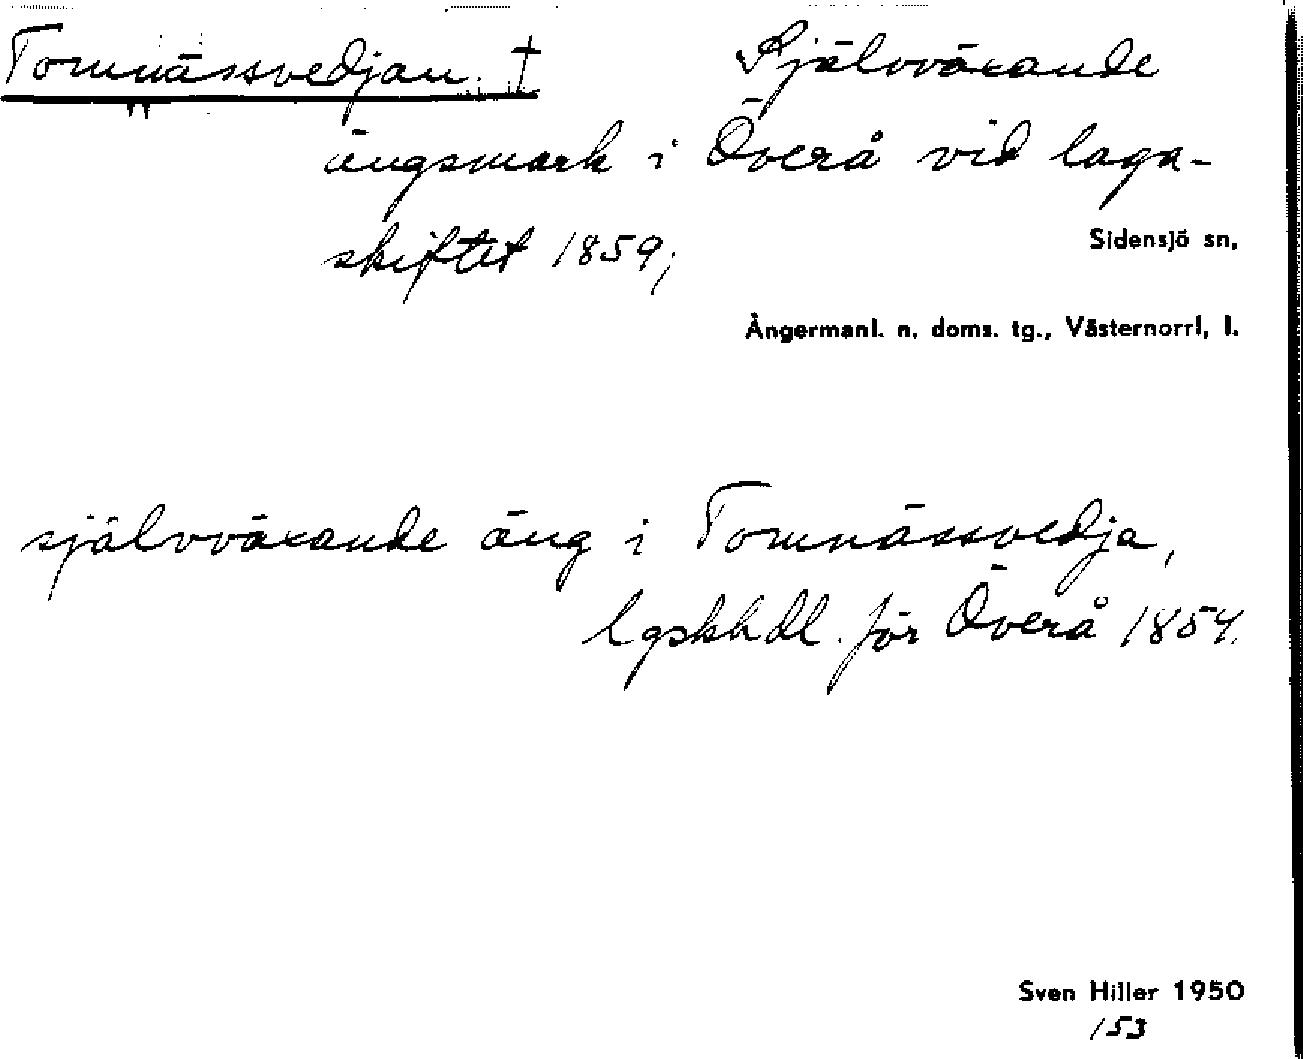 Tomnässvedjan. † Självväxande
ängsmark i Överå vid laga-
skiftet 1859;
Sidensjö sn,
Ångermanl. n. doms. tg., Västernorrl, l.
självväxande äng i Tomnässvedja,
lgskhdl. för Överå 1859.
Sven Hiller 1950
153